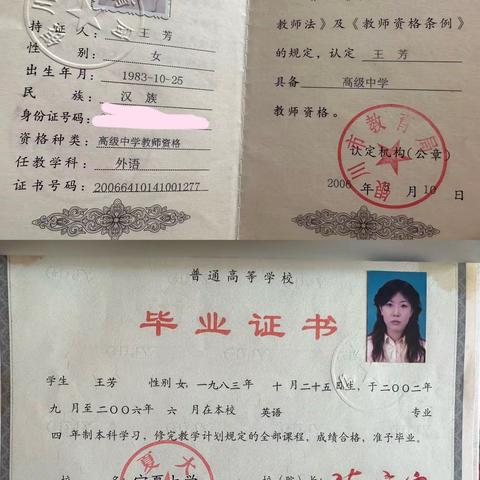 持 证 人: 王 芳
性 别: 女
出生年月: 1983-10-25
民 族: 汉 族
身份证号码:
资格种类: 高级中学教师资格
任教学科: 外语
证书号码: 20066410141001277
教师法》及《教师资格条例》
的规定, 认定 王 芳
具备 高级中学
教师资格。
教育局
认定机构(公章)
2006 年 月 10 日
普通高等学校
毕业证书
学生 王芳 性别 女, 一九八三年 十 月二十五日生, 于二〇〇二年
九 月至二〇〇六年 六 月在本校 英语 专业
四 年制本科学习, 修完教学计划规定的全部课程, 成绩合格, 准予毕业。